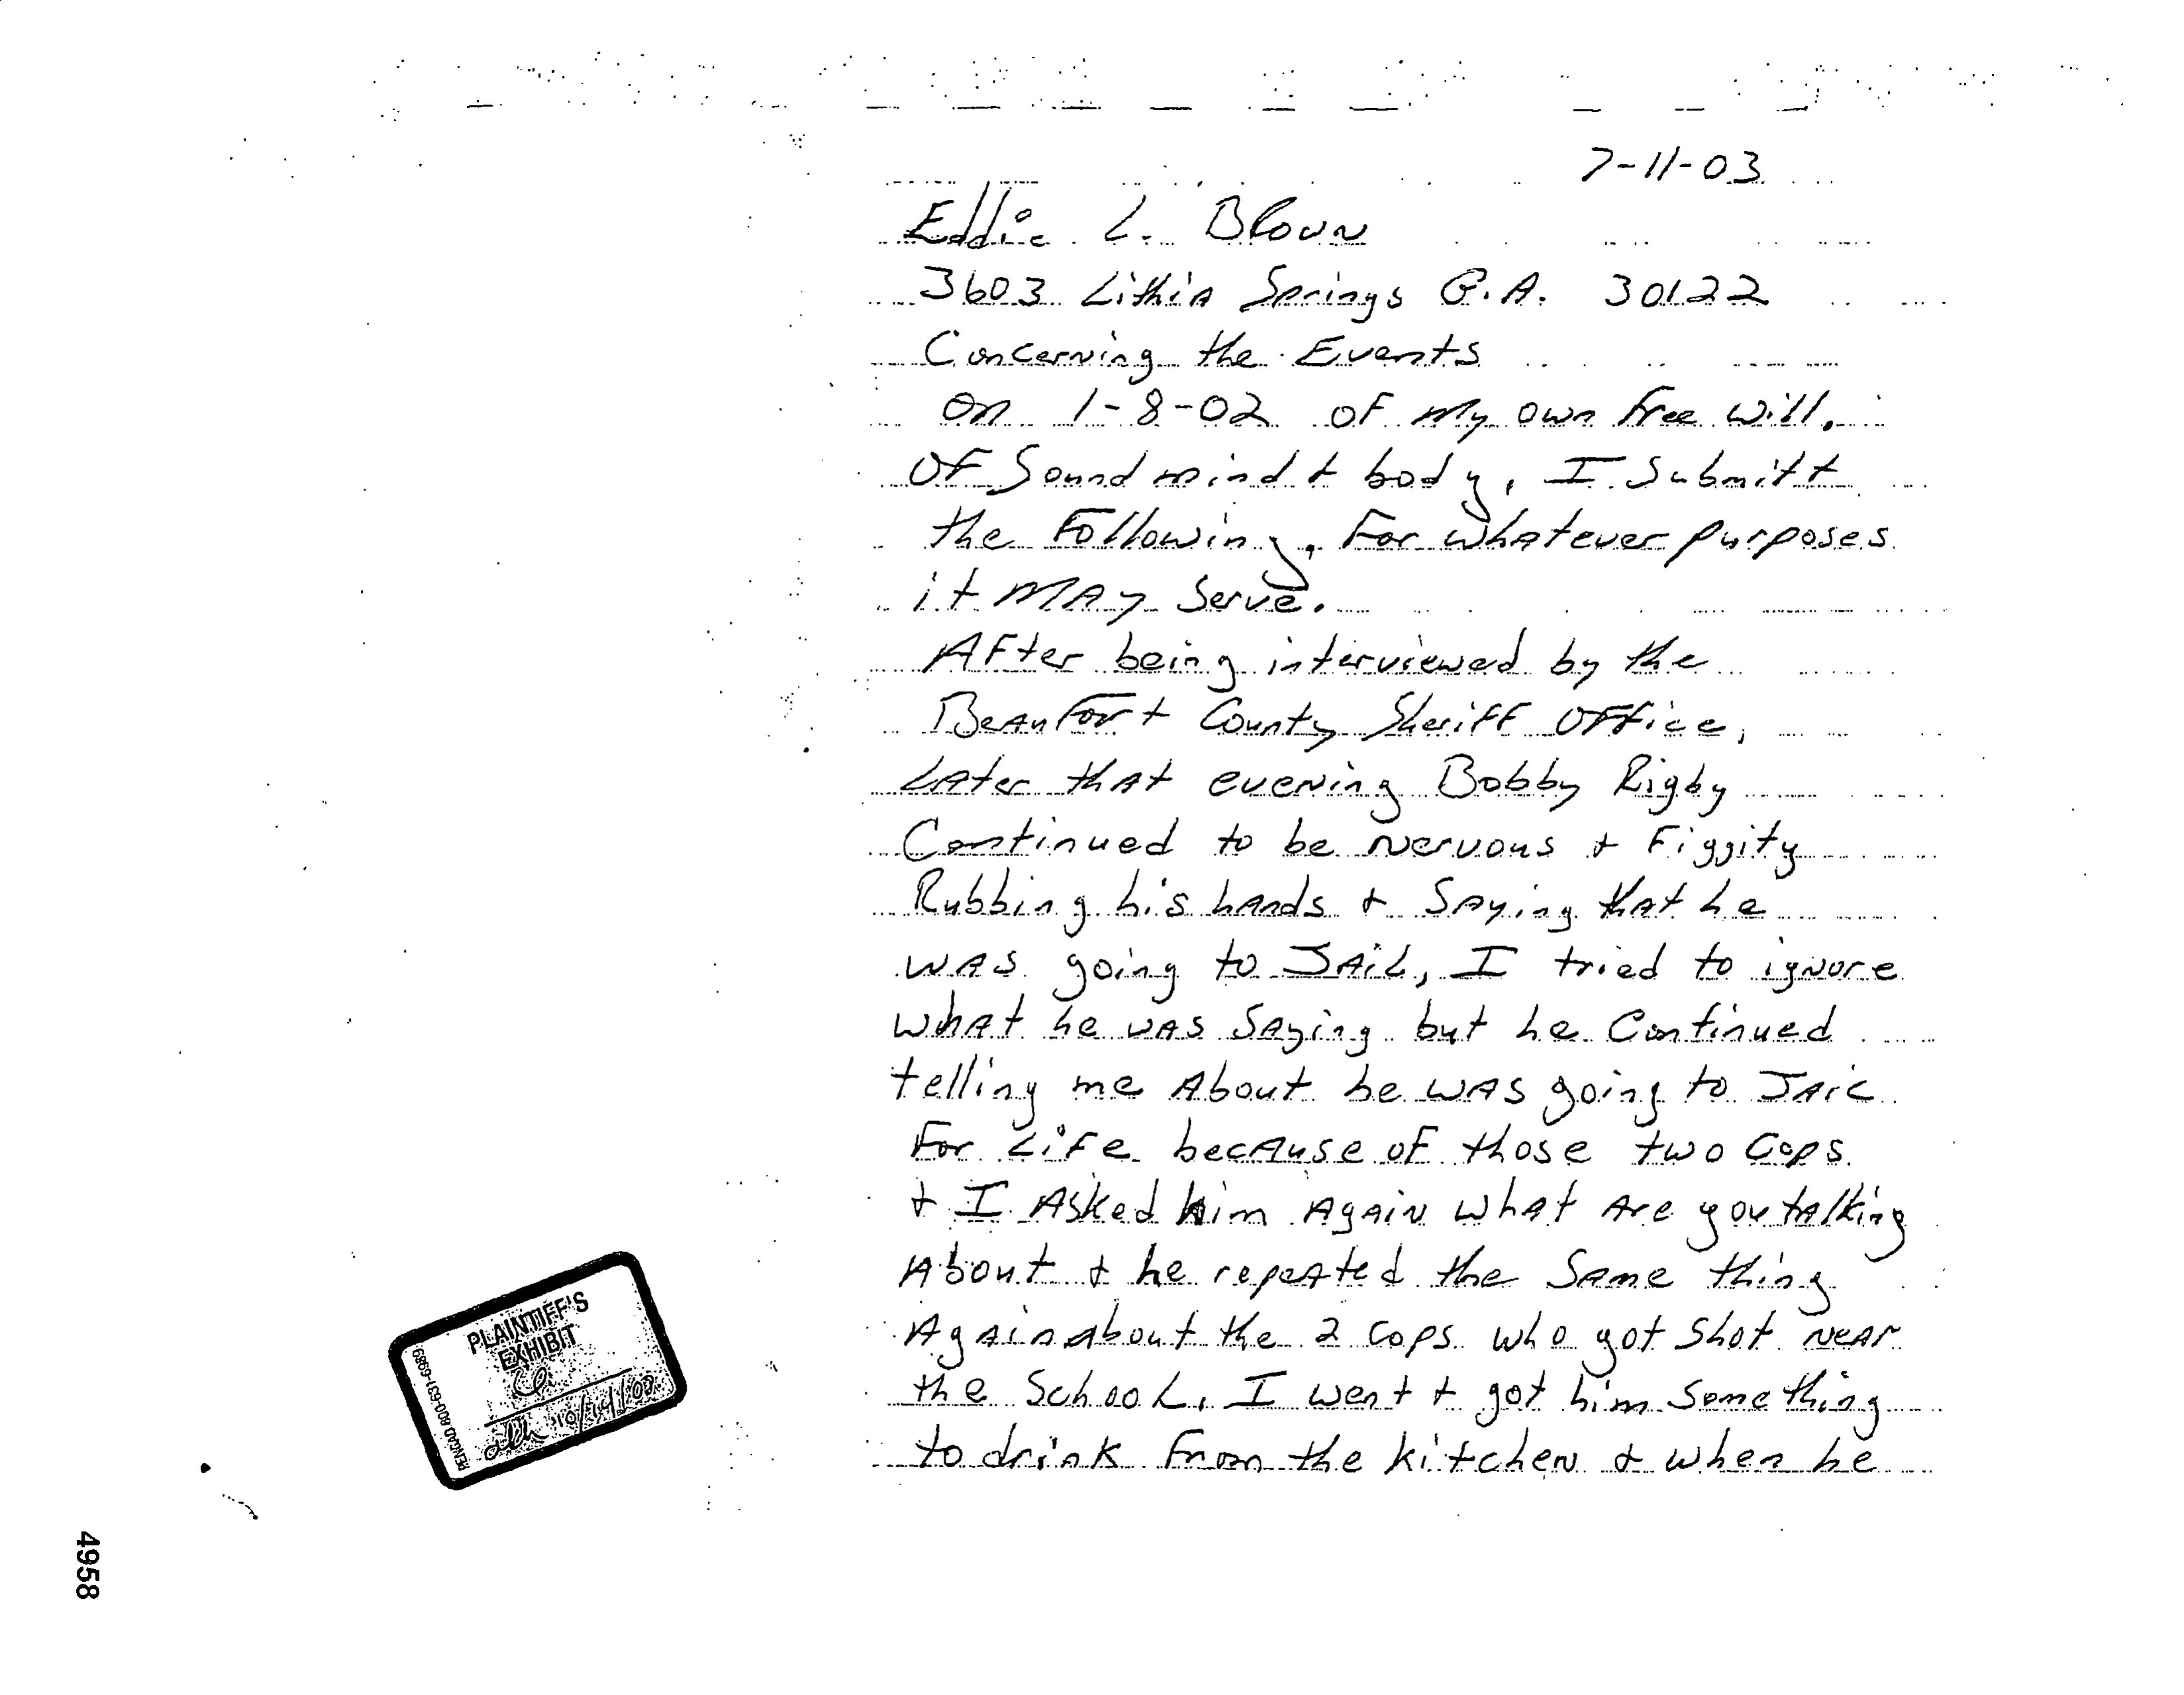 7-11-03
Eddie L. Bloun
3603 Lithia Springs G.A. 30122
Concerning the Events
on 1-8-02 of my own free will.
OF Sound mind + body, I Submitt
the Following, For whatever purposes
it MAY Serve.
AFter being interviewed by the
BeauFort County SheriFF OFFice,
LAter thAt eveNing Bobby Rigby
Continued to be Nervous + Figgity
Rubbing his hAnds + SAying thAt he
WAS going to JAiL, I tried to igNore
whAt he wAs SAying but he Continued
telling me About he wAS going to JAiL
For LiFe becAuse oF those two Cops
+ I Asked him AgAiN whAt Are you tAlking
About + he repeAted the SAme thing
AgAin About the 2 Cops who got Shot NeAr
the SchooL, I went + got him Something
to drink From the kitcheN + when he
PLAINTIFF'S
EXHIBIT
10/14/
PENGAD 800-631-6989
4958